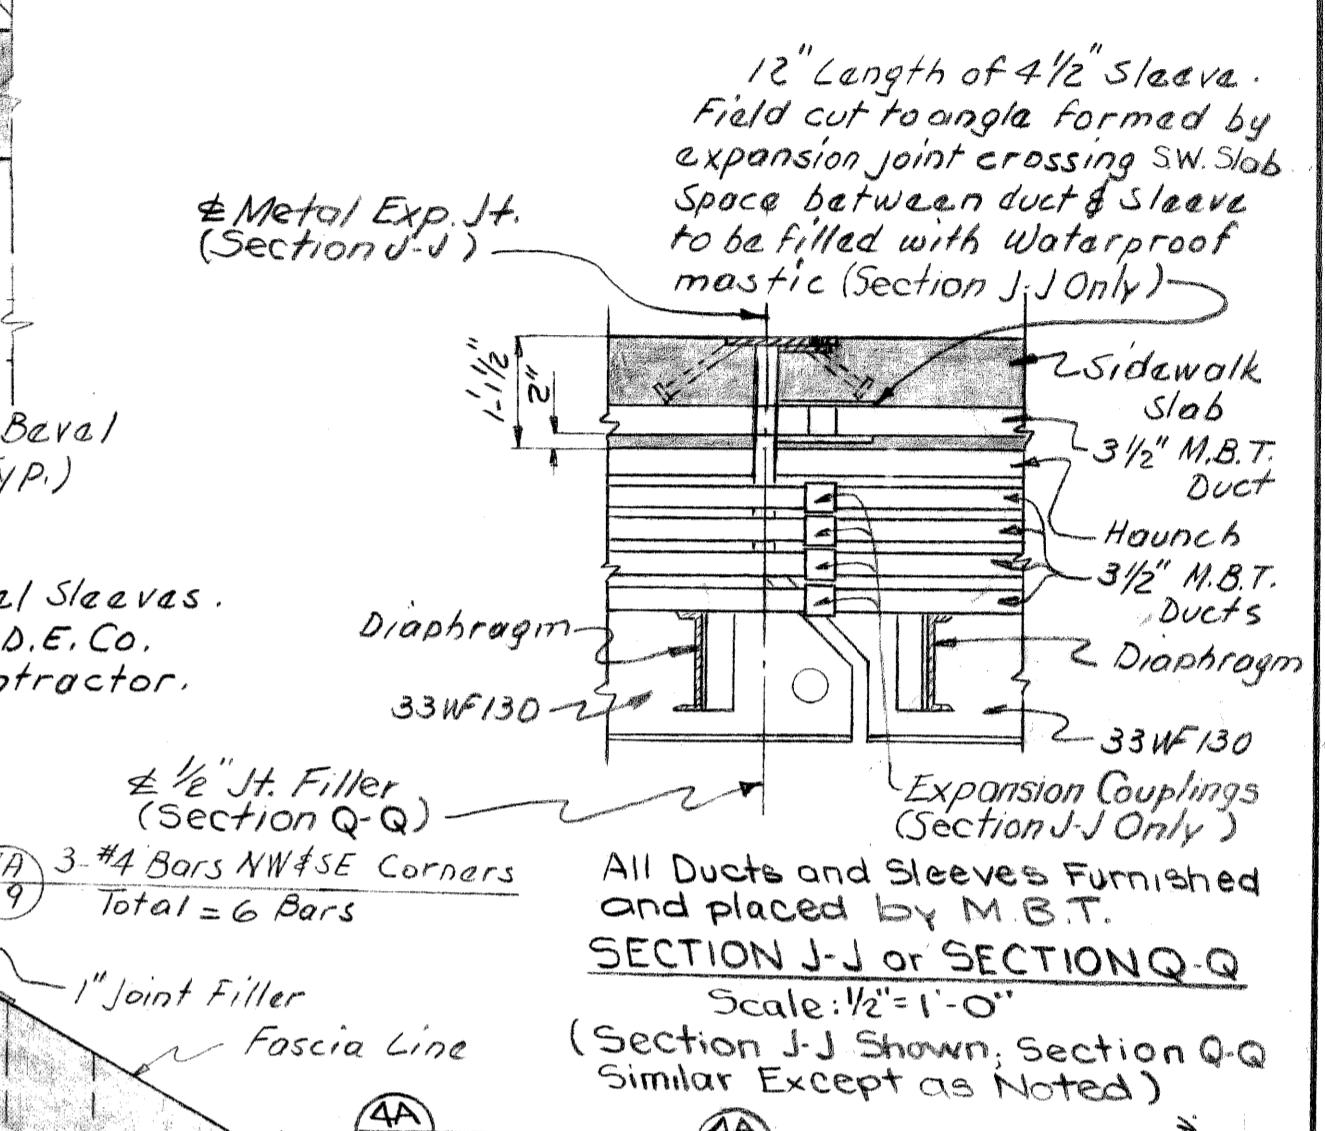 12" Length of 4 1/2" Sleeve.
Field cut to angle formed by
expansion joint crossing S.W. Slab
Space between duct & Sleeve
to be filled with Waterproof
mastic (Section J-J Only)
℄ Metal Exp. Jt.
(Section J-J)
1'-1 1/2"
2"
Sidewalk
Slab
3 1/2" M.B.T.
Duct
Haunch
3 1/2" M.B.T.
Ducts
Diaphragm
Diaphragm
33WF130
33WF130
Expansion Couplings
(Section J-J Only)
℄ 1/2" Jt. Filler
(Section Q-Q)
Bevel
yp.)
Sleeves.
D.E. Co.
tractor.
A
9
3-#4 Bars NW & SE Corners
Total = 6 Bars
1" Joint Filler
Fascia Line
All Ducts and Sleeves Furnished
and placed by M.B.T.
SECTION J-J or SECTION Q-Q
Scale: 1/2" = 1'-0"
(Section J-J Shown; Section Q-Q
Similar Except as Noted)
4A
4A